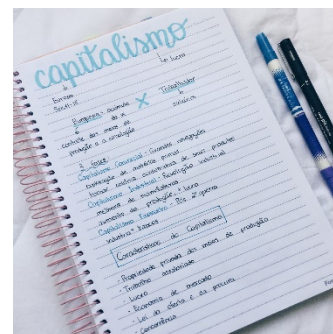 capitalismo
↳ lucro
Europa
Séc. 15
Burguesia: acúmulo
X
Trabalhador
salário
controle dos meios de
produção e a circulação
3 fases:
Capitalismo Comercial: Grandes navegações
exploração de matéria prima
Capitalismo Industrial: Revolução industrial
aumento da produção, + lucro
Capitalismo Financeiro: Pós 2ª guerra
indústria + bancos
Características do Capitalismo
- Propriedade privada dos meios de produção
- Trabalho assalariado
- Lucro
- Economia de mercado
- Lei da oferta e da procura
- Concorrência